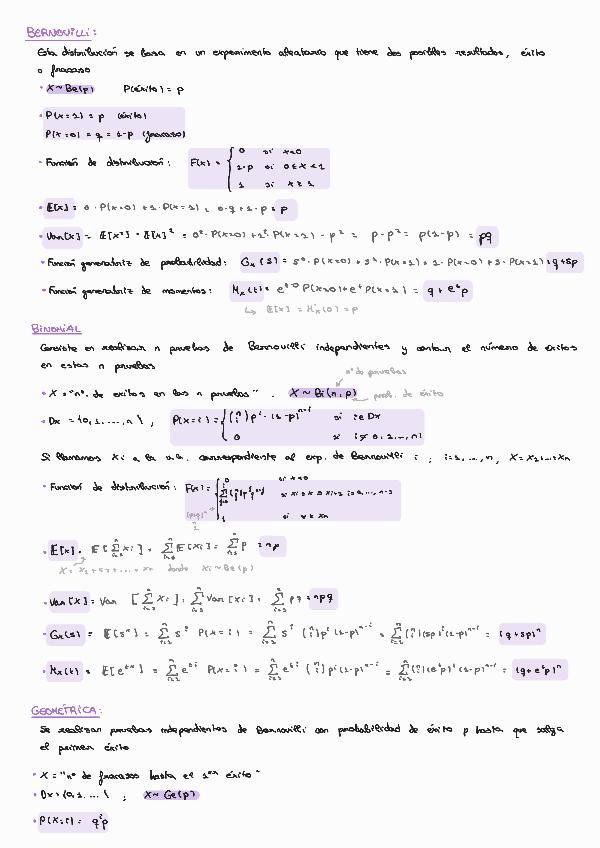 BERNOUILLI:
Esta distribución se basa en un experimento aleatorio que tiene dos posibles resultados, éxito
o fracaso
• X~Be(p) P(éxito) = p
• P(X=1) = p (éxito)
P(X=0) = q = 1-p (fracaso)
• Función de distribución: F(x) = { 0 si x<0
1-p si 0≤x<1
1 si x≥1
• E[X] = 0·P(X=0) + 1·P(X=1) = 0·q + 1·p = p
• Var[X] = E[X²] - E[X]² = 0²·P(X=0) + 1²·P(X=1) - p² = p - p² = p(1-p) = pq
• Función generatriz de probabilidad: Gx(s) = s⁰·P(X=0) + s¹·P(X=1) = 1·P(X=0) + s·P(X=1) = q+sp
• Función generatriz de momentos: Mx(t) = e^t·0 P(X=0) + e^t P(X=1) = q + e^t p
↳ E[X] = M'x(0) = p
BINOMIAL
Consiste en realizar n pruebas de Bernouilli independientes y contar el número de éxitos
en estas n pruebas
nº de pruebas
• X = "nº. de éxitos en las n pruebas". X~Bi(n,p)
prob. de éxito
• Dx = {0,1,...,n}; P(X=i) = { (n i) p^i·(1-p)^n-i si i∈Dx
0 si i≠0,1,...,n
Si llamamos Xi a la v.a. correspondiente al exp. de Bernouilli i; i=1,...,n, X=X1+...+Xn
• Función de distribución: F(x) = { 0 si x<0
si xi≤x≤xi+1 i=0,...,n-1
1 si x≥xn
• E[X] = E[∑Xi] = ∑E[Xi] = ∑p = np
X = X1+X2+...+Xn donde Xi~Be(p)
• Var[X] = Var [∑Xi] = ∑Var[Xi] = ∑pq = npq
• Gx(s) = E[s^x] = ∑s^i P(X=i) = ∑s^i (n i)p^i(1-p)^n-i = ∑(n i)(sp)^i(1-p)^n-i = (q+sp)^n
• Mx(t) = E[e^tx] = ∑e^ti P(X=i) = ∑e^ti (n i)p^i(1-p)^n-i = ∑(n i)(e^t p)^i(1-p)^n-i = (q+e^t p)^n
GEOMÉTRICA:
Se realizan pruebas independientes de Bernouilli con probabilidad de éxito p hasta que salga
el primer éxito
• X = "nº de fracasos hasta el 1er éxito"
• Dx={0,1,...}; X~Ge(p)
• P(X=i) = q^i p